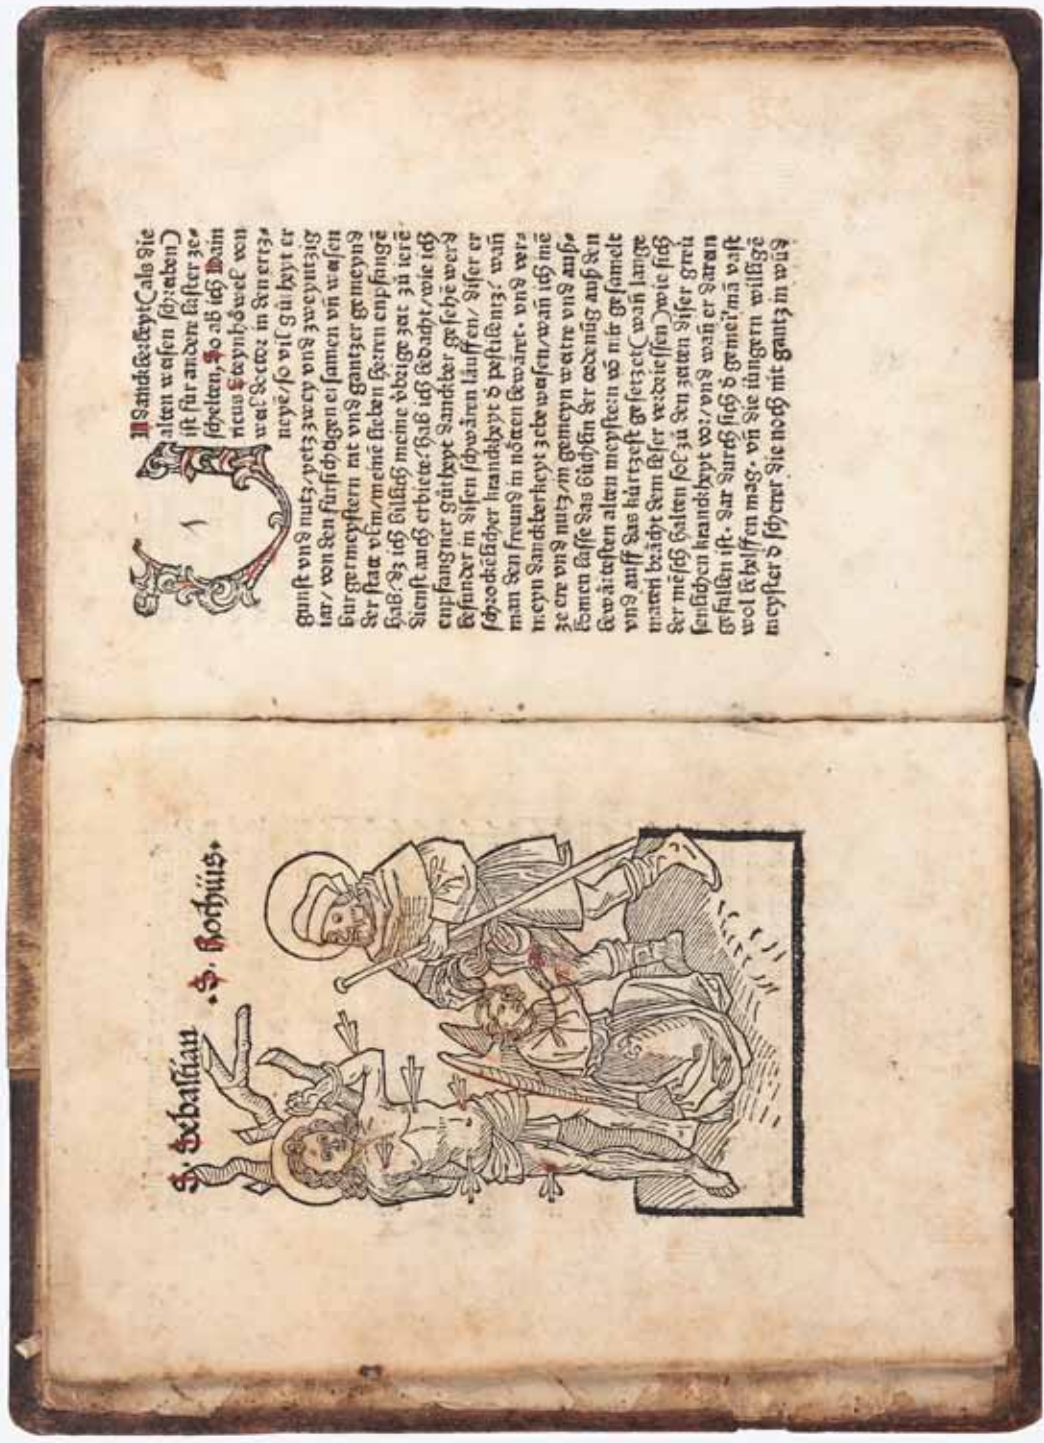 S. Sebastian · S. Rochüs·
Undanckberkeyt (als die
alten weisen schreiben)
ist für andere laster ze-
schelten, So ab ich Hain
ricus Steynhöwel von
weil doctor in den ertz-
neyē/so vil gůtheyt er
gunst vnd nutz/yetz zwey vnd zweyntzig
iar/ von den fürsichtigen ersamen vn̄ weisen
burgermeystern rat vnd gantzer gemeynd
der statt vlm/meinē lieben herren enpfangē
hab/dz ich billich meine übrige zeit zů ierē
dienst auch erbiete/hab ich bedacht/wie ich
enpfangner gůtheyt danckber gesehē werd
besunder in disen schwären läuffen/diser er
schrockelicher kranckheyt d pestilentz/ wan̄
man den freund in nötten bewäret· vnd ver-
meyn danckberkeyt zebeweisen/wan̄ ich mē
ze ere vnd nutz/in gemeyn weitre vnd auß-
komen lasse das büchlin der ordenung auß den
bewärtesten alten meystern vō mir gesamelt
vnd auff das kürtzest gesetzet (wan̄ lanige
materi brächt dem leser verdriessen) wie sich
der mēsch halten sol zů den zeiten diser greü
senlichen kranckheyt vor/vnd wan̄ er daran
gefallen ist· dar durch sich d gemei'mā vast
wol behelffen mag· vn̄ die iüngern willigē
meyster d scherer die noch nit gantz in wūd